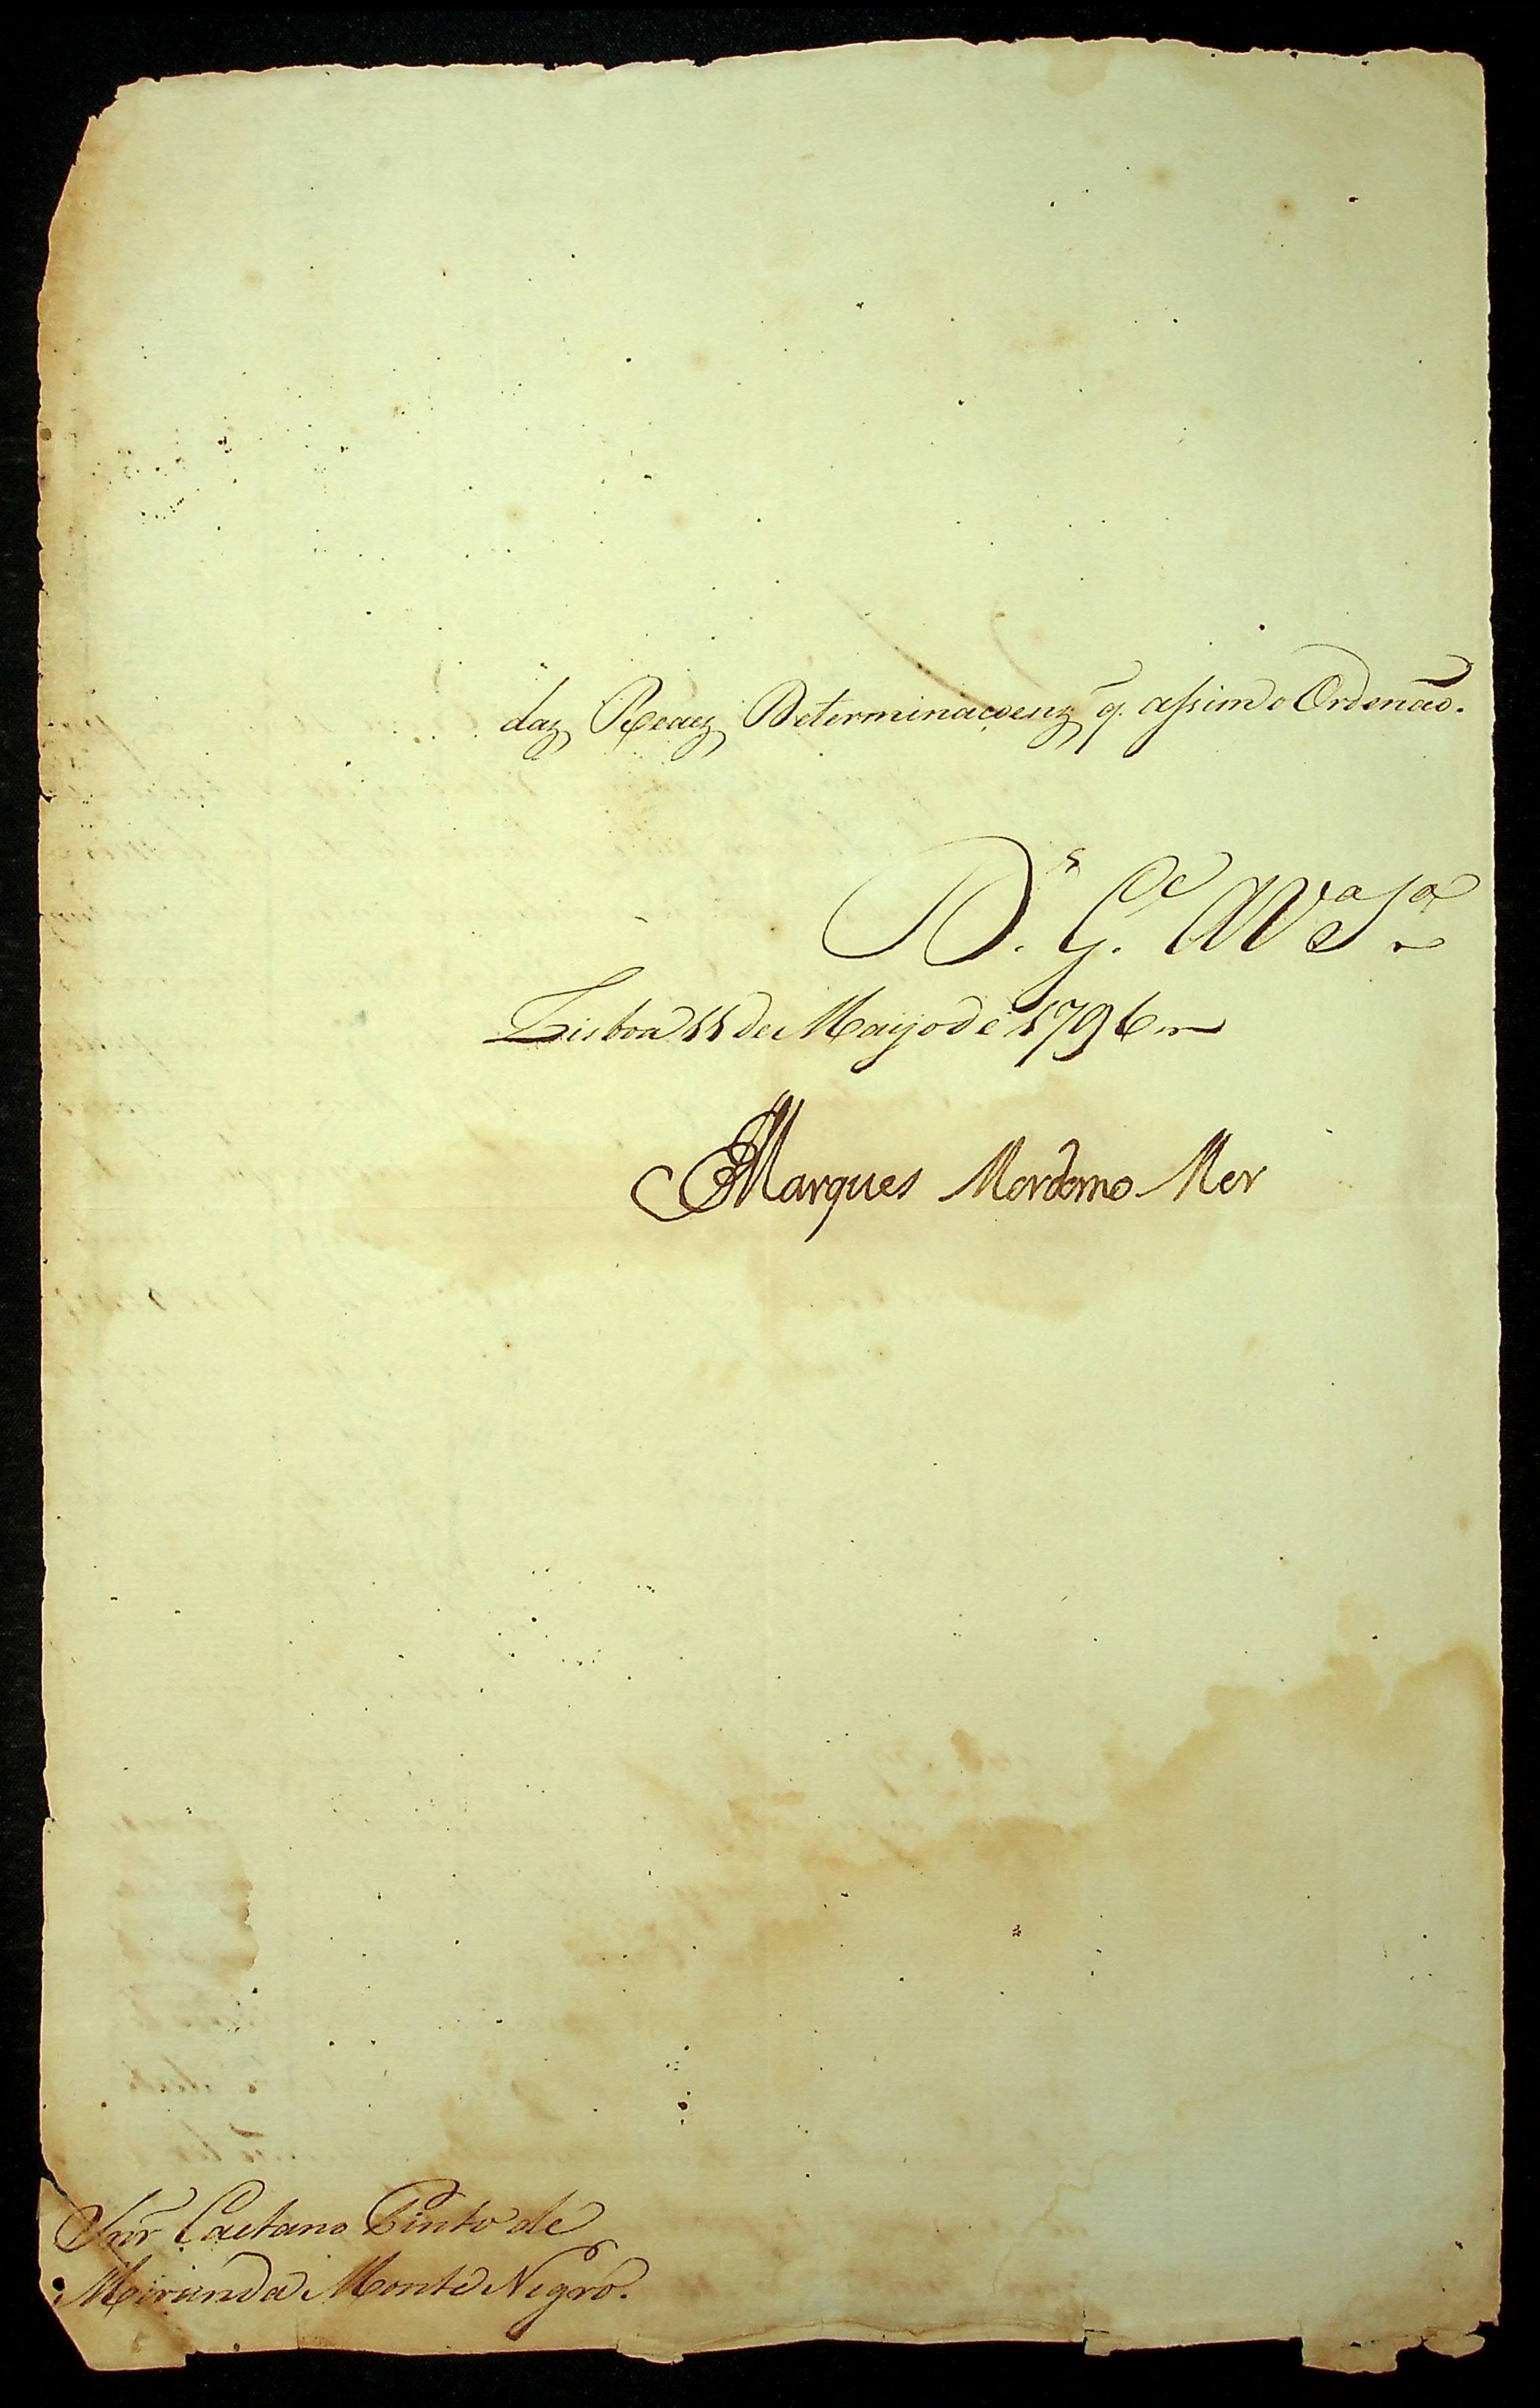 das Reaes Determinaçoens q̃. assim o Ordenão.
D.s G.e a V. S.a
Lisboa 11 de Mayo de 1796
Marques Mordomo Mor
Snr̃ Caetano Pinto de
Miranda Monte Negro.